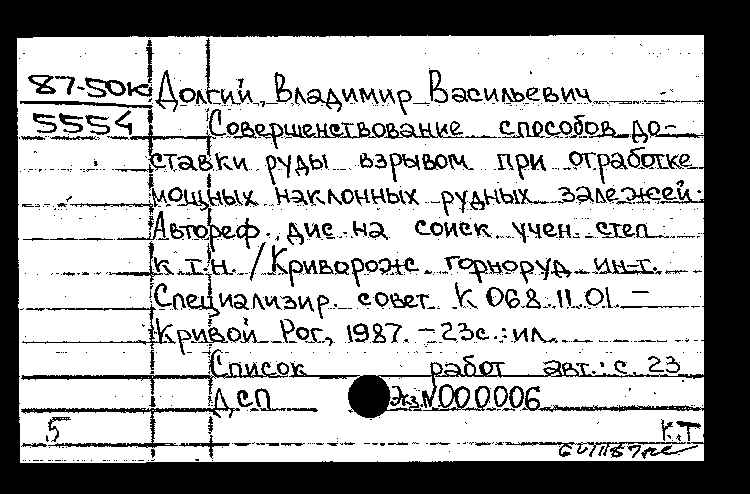 87-50К Долгий, Владимир Васильевич
5554 Совершенствование способов до-
ставки руды взрывом при отработке
мощных наклонных рудных залежей.
Автореф. дис. на соиск. учен. степ.
к.т.н. /Криворож. горноруд. ин-т.
Специализир. совет К 068.11.01. -
Кривой Рог, 1987. - 23с.: ил.
Список работ авт.: с. 23
ДСП Экз. N000006
5 К.Т.